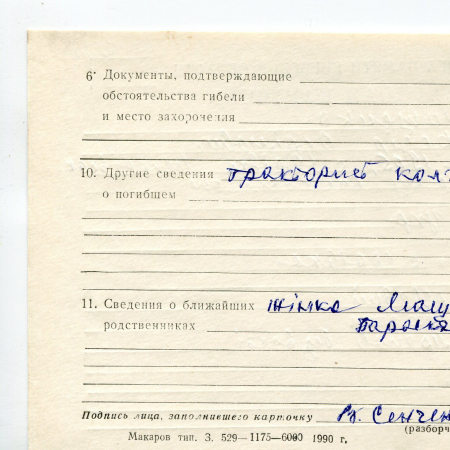 6· Документы, подтверждающие
обстоятельства гибели
и место захоронения
10. Другие сведения тракторист
о погибшем
11. Сведения о ближайших жінка
родственниках
Подпись лица, заполнившего карточку
(разборч
Макаров тип. З. 529—1175—6000 1990 г.